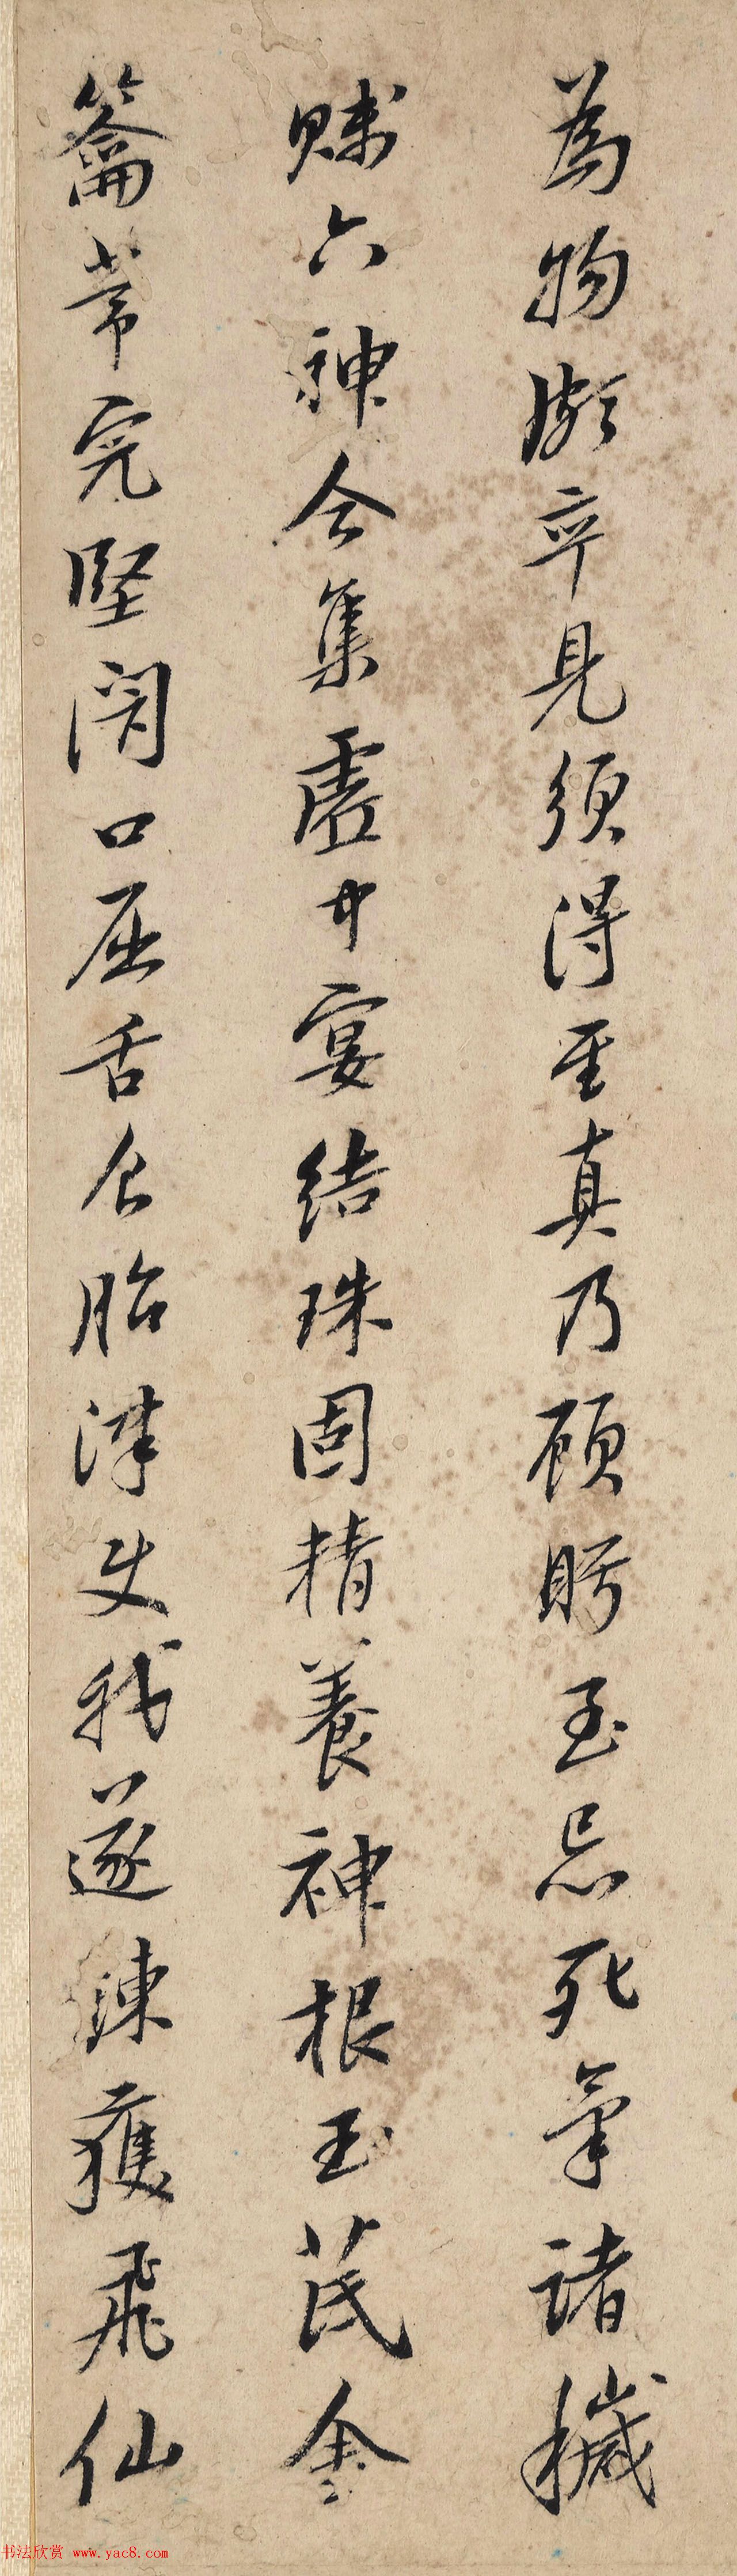 為物頗卒見須得至真乃顧盻至忌死氣諸穢
賤六神合集虛中宴結珠固精養神根玉茋金
籥常完堅閉口屈舌食胎津使我遂鍊獲飛仙
书法欣赏 www.yac8.com